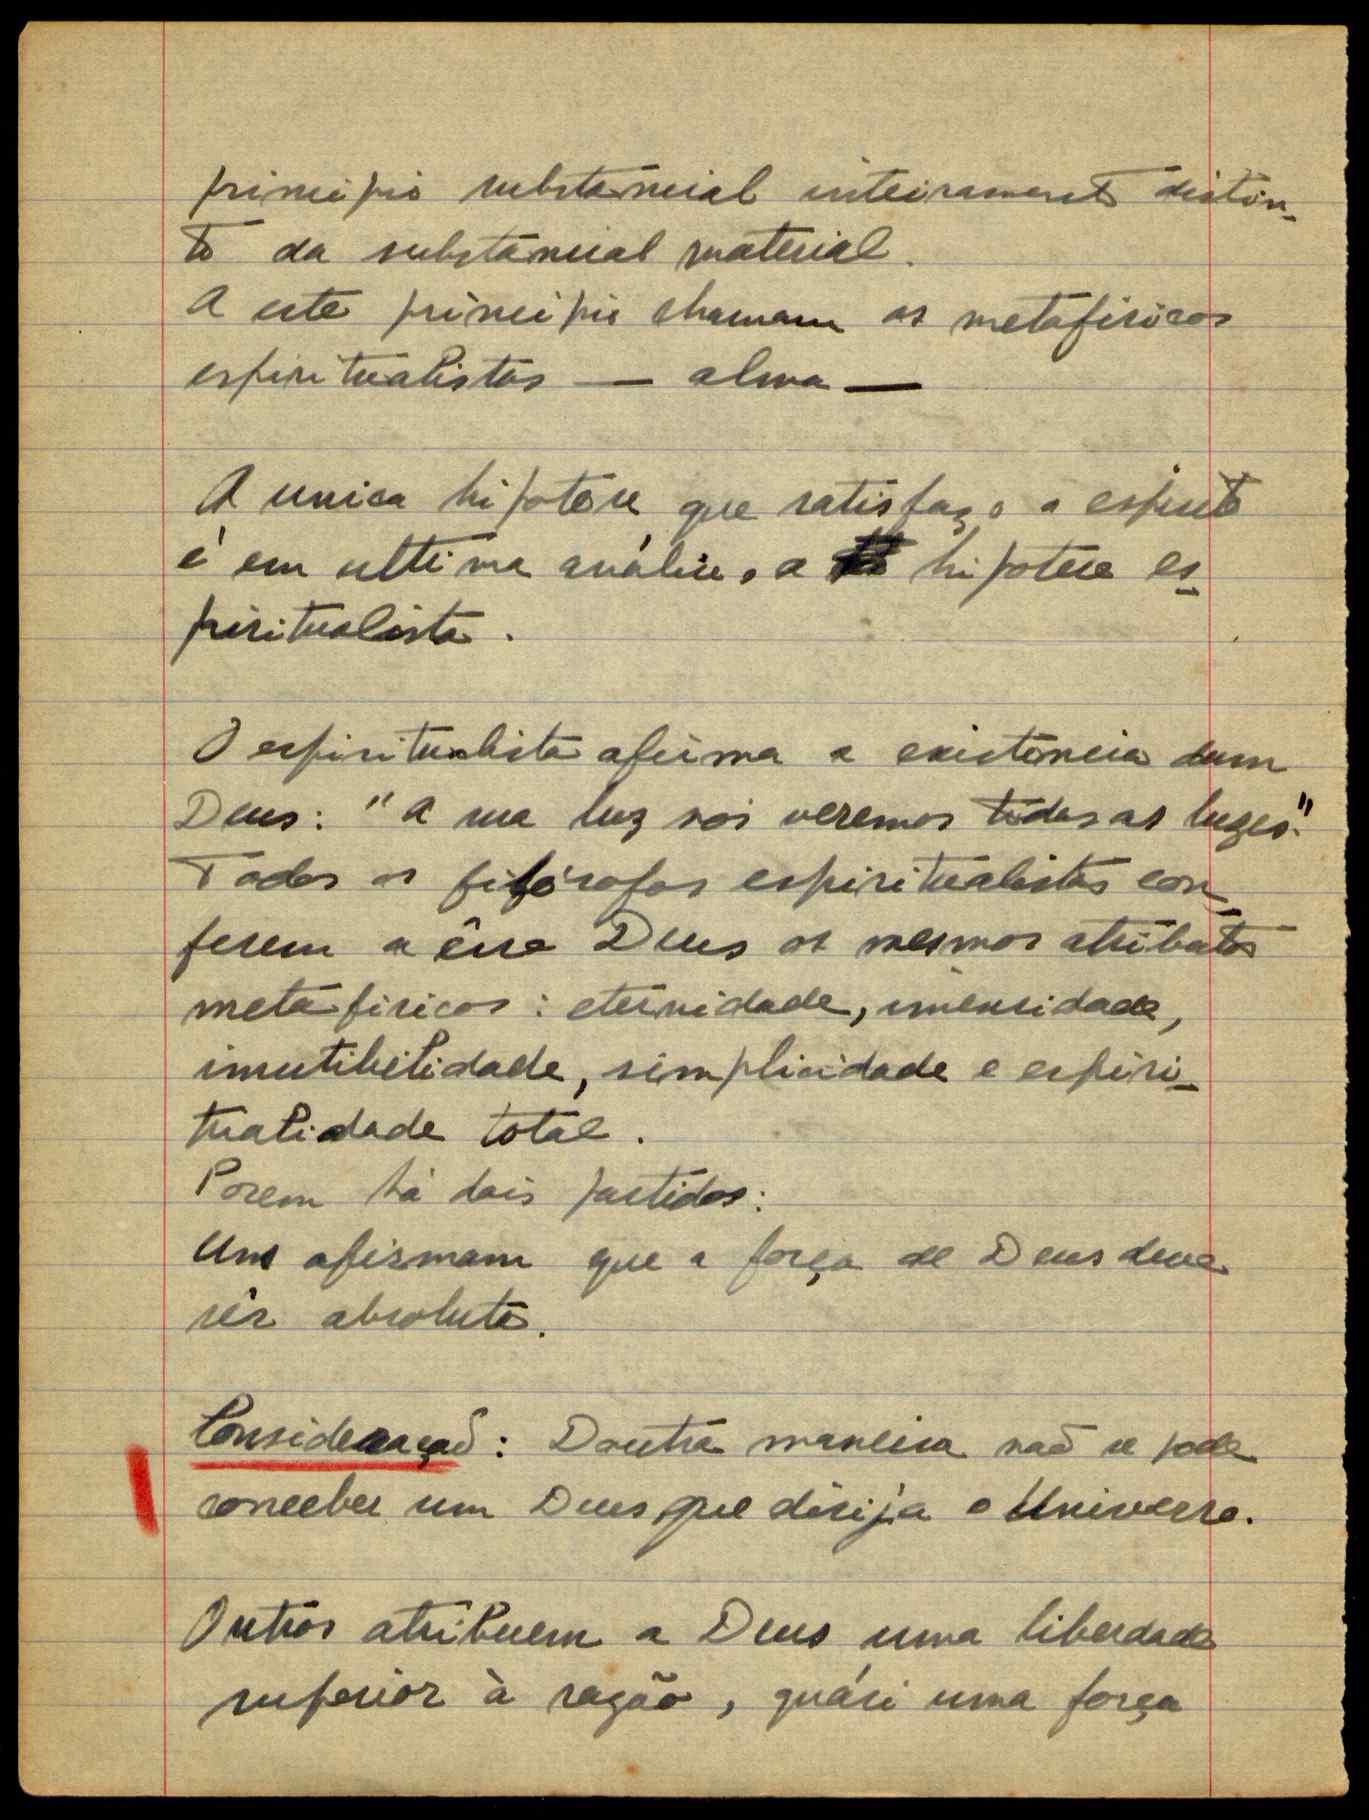 principio substancial inteiramente distin-
to da substancial material.
A este principio chamam os metafisicos
espiritualistas — alma —
A unica hipotese que satisfaço o espirito
é em ultima análise, a hipotese es-
piritualista.
O espiritualista afirma a existência dum
Deus: "A sua luz nós veremos tôdas as luzes".
Todos os filósofos espiritualistas con-
ferem a êsse Deus os mesmos atributos
metafisicos: eternidade, imensidade,
imutibilidade, simplicidade e espiri-
tualidade total.
Porem há dois partidos:
Uns afirmam que a força de Deus deve
sêr absoluta.
Consideração: Doutra maneira não se pode
conceber um Deus que dirija o Universo.
Outros atribuem a Deus uma liberdade
superior à razão, quási uma força